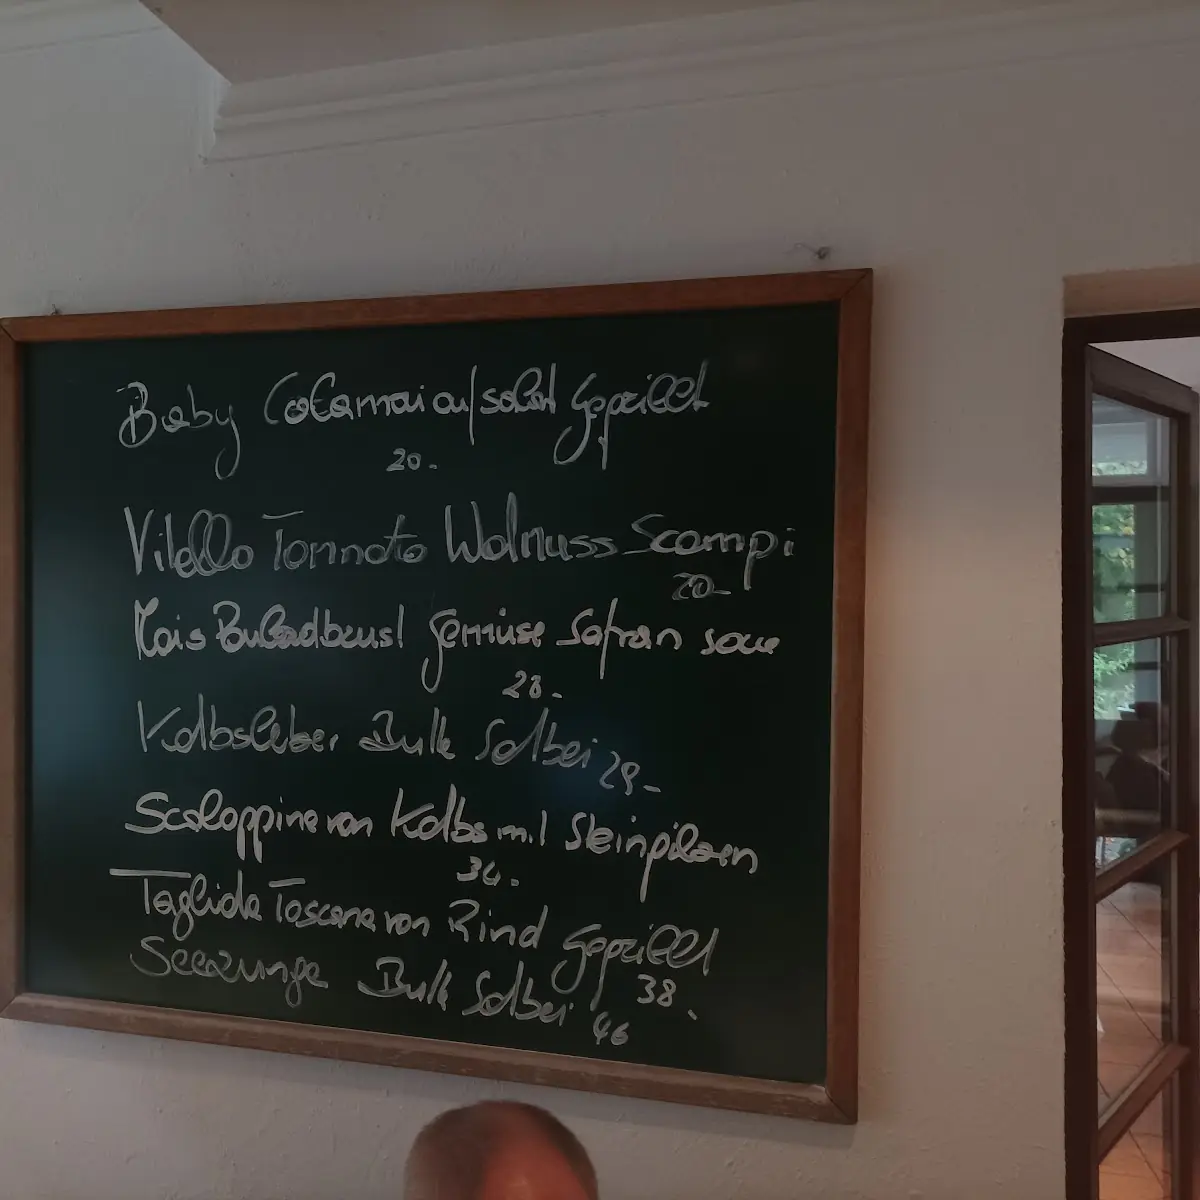 Baby Calamari auf salat Gegrillt
20.-
Vitello Tonnato Walnuss Scampi
20.-
Mais Pulardbrust gemüse Safran
28.-
Kalbsleber Butter Salbei 29.-
Scaloppine von Kalbs mit Steinpilzen
34.-
Toscana von Rind Gegrillt
38.-
Seezunge Butter Salbei 46